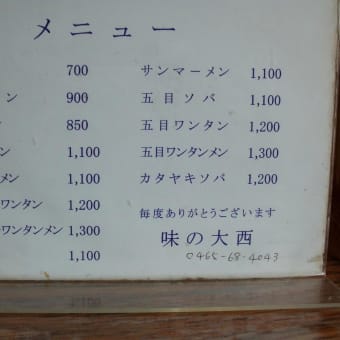 メニュー
700
ン 900
850
ン 1,100
メン 1,100
ワンタン 1,200
ワンタンメン 1,300
1,100
サンマーメン 1,100
五目ソバ 1,100
五目ワンタン 1,200
五目ワンタンメン 1,300
カタヤキソバ 1,200
毎度ありがとうございます
味の大西
0465-68-4043